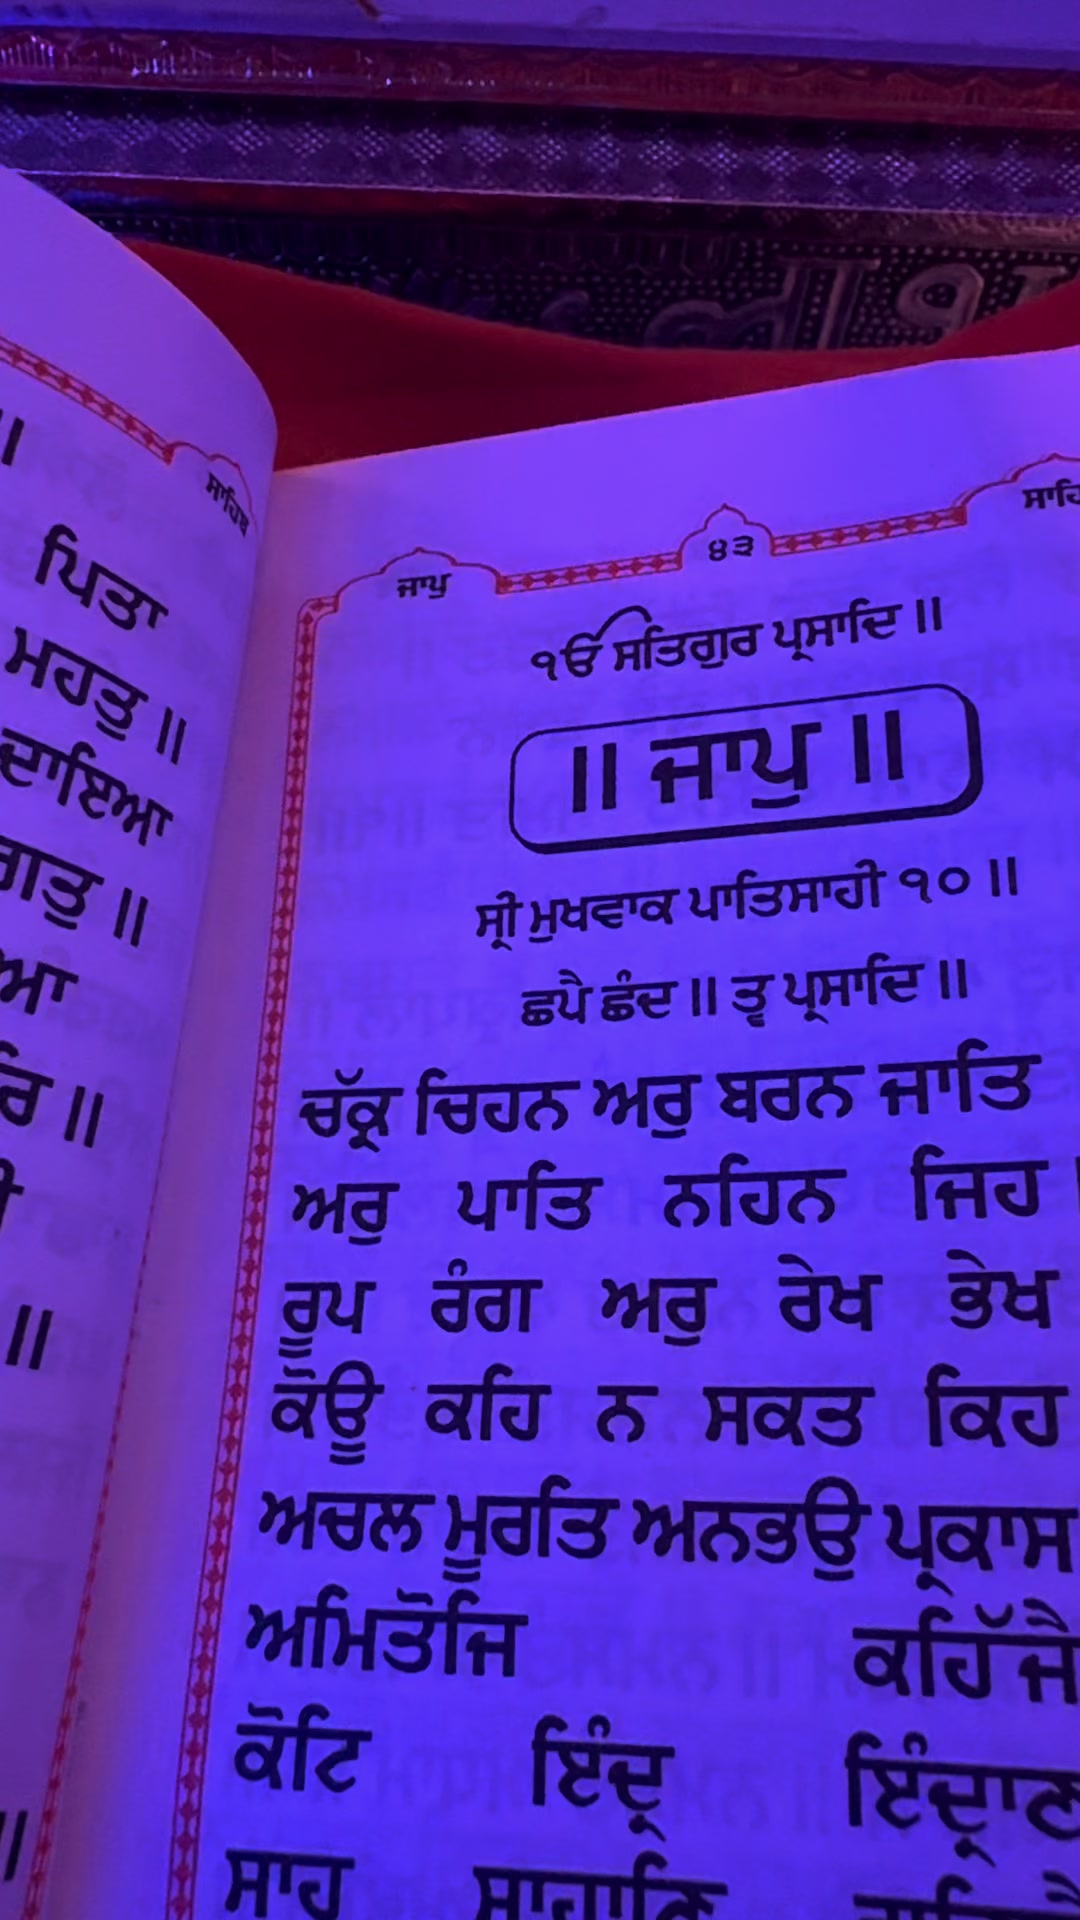 ਸਾਹਿਬ
ਪਿਤਾ
ਮਹਤੁ ॥
ਦਾਇਆ
ਗਤੁ ॥
ਆ
ਰਿ ॥
ਜਾਪੁ ੪੩
ੴ ਸਤਿਗੁਰ ਪ੍ਰਸਾਦਿ ॥
॥ ਜਾਪੁ ॥
ਸ੍ਰੀ ਮੁਖਵਾਕ ਪਾਤਿਸਾਹੀ ੧੦ ॥
ਛਪੈ ਛੰਦ ॥ ਤ੍ਵ ਪ੍ਰਸਾਦਿ ॥
ਚੱਕ੍ਰ ਚਿਹਨ ਅਰੁ ਬਰਨ ਜਾਤਿ
ਅਰੁ ਪਾਤਿ ਨਹਿਨ ਜਿਹ
ਰੂਪ ਰੰਗ ਅਰੁ ਰੇਖ ਭੇਖ
ਕੋਊ ਕਹਿ ਨ ਸਕਤ ਕਿਹ
ਅਚਲ ਮੂਰਤਿ ਅਨਭਉ ਪ੍ਰਕਾਸ
ਅਮਿਤੋਜਿ ਕਹਿੱਜੈ
ਕੋਟਿ ਇੰਦ੍ਰ ਇੰਦ੍ਰਾਣ
ਸਾਹੁ ਸਾਹਾਣਿ